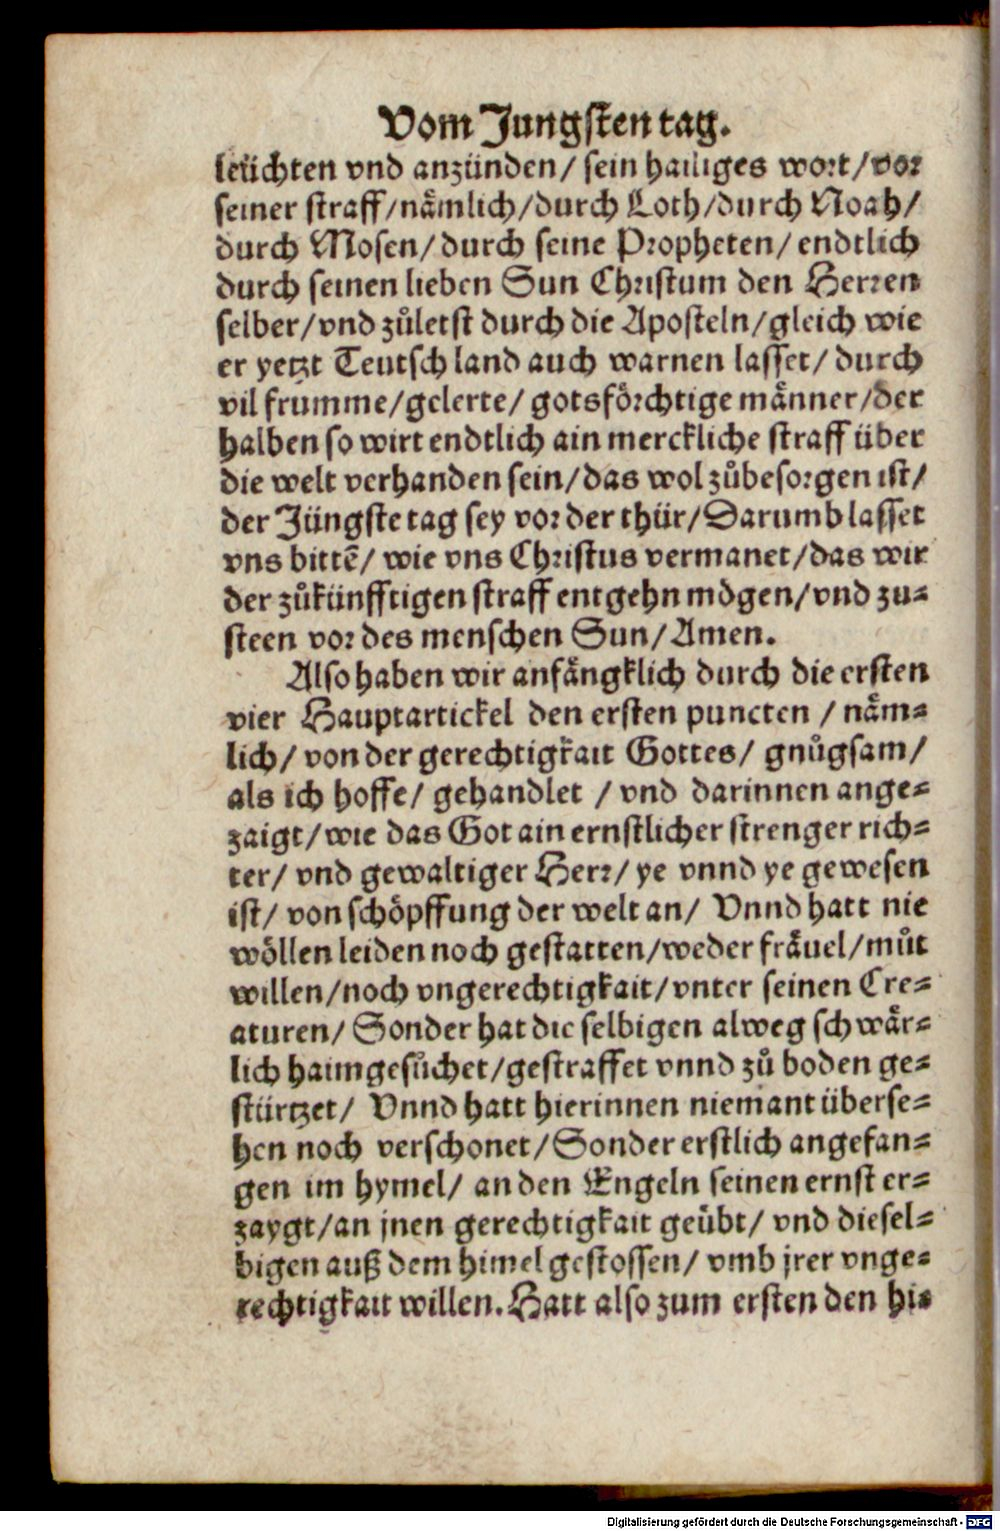 Vom Jungsten tag.
leüchten vnd anzünden/ sein hailiges wort/vor
seiner straff/nämlich/durch Loth/durch Noah/
durch Mosen/durch seine Propheten/ endtlich
durch seinen lieben Sun Christum den Herren
selber/vnd zůletst durch die Aposteln/gleich wie
er yetzt Teutsch land auch warnen lasset/ durch
vil frumme/gelerte/ gotsförchtige männer/der
halben so wirt endtlich ain merckliche straff über
die welt verhanden sein/das wol zůbesorgen ist/
der Jüngste tag sey vor der thür/Darumb lasset
vns bittē/ wie vns Christus vermanet/das wir
der zůkünfftigen straff entgehn mögen/vnd zu⸗
steen vor des menschen Sun/Amen.
Also haben wir anfängklich durch die ersten
vier Hauptartickel den ersten puncten / näm⸗
lich/ von der gerechtigkait Gottes/ gnůgsam/
als ich hoffe/ gehandlet / vnd darinnen ange⸗
zaigt/wie das Got ain ernstlicher strenger rich⸗
ter/ vnd gewaltiger Herr/ ye vnnd ye gewesen
ist/ von schöpffung der welt an/ Vnnd hatt nie
wöllen leiden noch gestatten/weder fräuel/můt
willen/noch vngerechtigkait/vnter seinen Cre⸗
aturen/ Sonder hat die selbigen alweg schwär⸗
lich haimgesůchet/gestraffet vnnd zů boden ge⸗
stürtzet/ Vnnd hatt hierinnen niemant überse⸗
hen noch verschonet/Sonder erstlich angefan⸗
gen im hymel/ an den Engeln seinen ernst er⸗
zaygt/an jnen gerechtigkait geübt/ vnd diesel⸗
bigen auß dem himel gestossen/ vmb jrer vnge⸗
rechtigkait willen. Hatt also zum ersten den hi⸗
Digitalisierung gefördert durch die Deutsche Forschungsgemeinschaft - DFG